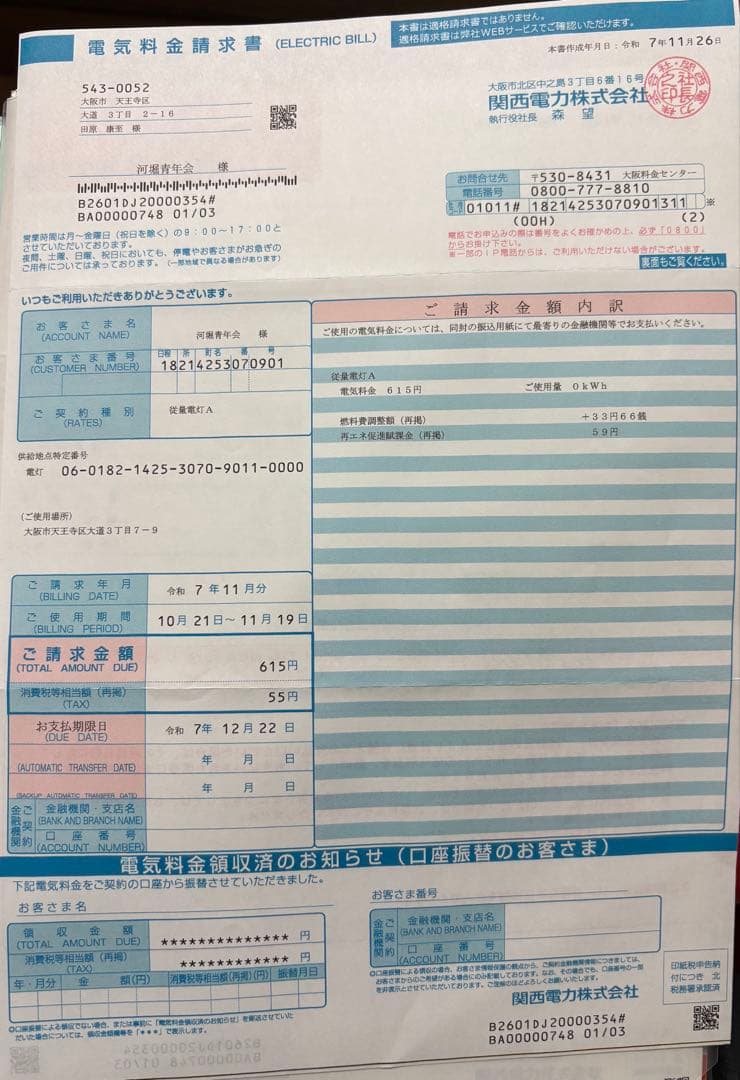 電気料金請求書 (ELECTRIC BILL)
本書は適格請求書ではありません。
適格請求書は弊社WEBサービスでご確認いただけます。
本書作成年月日:令和 7年11月26日
543-0052
大阪市 天王寺区
大道 3丁目 2-16
田原 康至 様
河堀青年会 様
B2601DJ20000354#
BA00000748 01/03
大阪市北区中之島3丁目6番16号
関西電力株式会社
執行役社長 森 望
お問合せ先 〒530-8431 大阪料金センター
電話番号 0800-777-8810
01011# 18214253070901311 ※
(00H) (2)
電話でお申込みの際は番号をよくお確かめの上、必ず「0800」
からお掛け下さい。
※一部のIP電話からは、ご利用いただけない場合がございます。
裏面もご覧ください。
営業時間は月~金曜日(祝日を除く)の9:00~17:00と
させていただいております。
夜間、土曜、日曜、祝日においても、停電やお客さまがお急ぎの
ご用件については承っております。(一部地域で異なる場合があります)
いつもご利用いただきありがとうございます。
お客さま名
(ACCOUNT NAME)
河堀青年会 様
お客さま番号
(CUSTOMER NUMBER)
日程 所 町名 番 号
18214253070901
ご契約種別
(RATES)
従量電灯A
供給地点特定番号
電灯 06-0182-1425-3070-9011-0000
(ご使用場所)
大阪市天王寺区大道3丁目7-9
ご請求金額内訳
ご使用の電気料金については、同封の振込用紙にて最寄りの金融機関等でお支払いください。
従量電灯A
電気料金 615円 ご使用量 0kWh
燃料費調整額(再掲) +33円66銭
再エネ促進賦課金(再掲) 59円
ご請求年月
(BILLING DATE)
令和 7年11月分
ご使用期間
(BILLING PERIOD)
10月21日~11月19日
ご請求金額
(TOTAL AMOUNT DUE)
615円
消費税等相当額(再掲)
(TAX)
55円
お支払期限日
(DUE DATE)
令和 7年12月22日
年 月 日
(AUTOMATIC TRANSFER DATE)
年 月 日
(BACKUP AUTOMATIC TRANSFER DATE)
ご契約金融機関
金融機関・支店名
(BANK AND BRANCH NAME)
口座番号
(ACCOUNT NUMBER)
電気料金領収済のお知らせ(口座振替のお客さま)
下記電気料金をご契約の口座から振替させていただきました。
お客さま名
お客さま番号
領収金額
(TOTAL AMOUNT DUE)
************* 円
消費税等相当額(再掲)
(TAX)
*********** 円
年・月分 金 額(円) 消費税等相当額(再掲)(円) 振替月日
ご契約金融機関
金融機関・支店名
(BANK AND BRANCH NAME)
口座番号
(ACCOUNT NUMBER)
関西電力株式会社
印紙税申告納
付につき 北
税務署承認済
B2601DJ20000354#
BA00000748 01/03